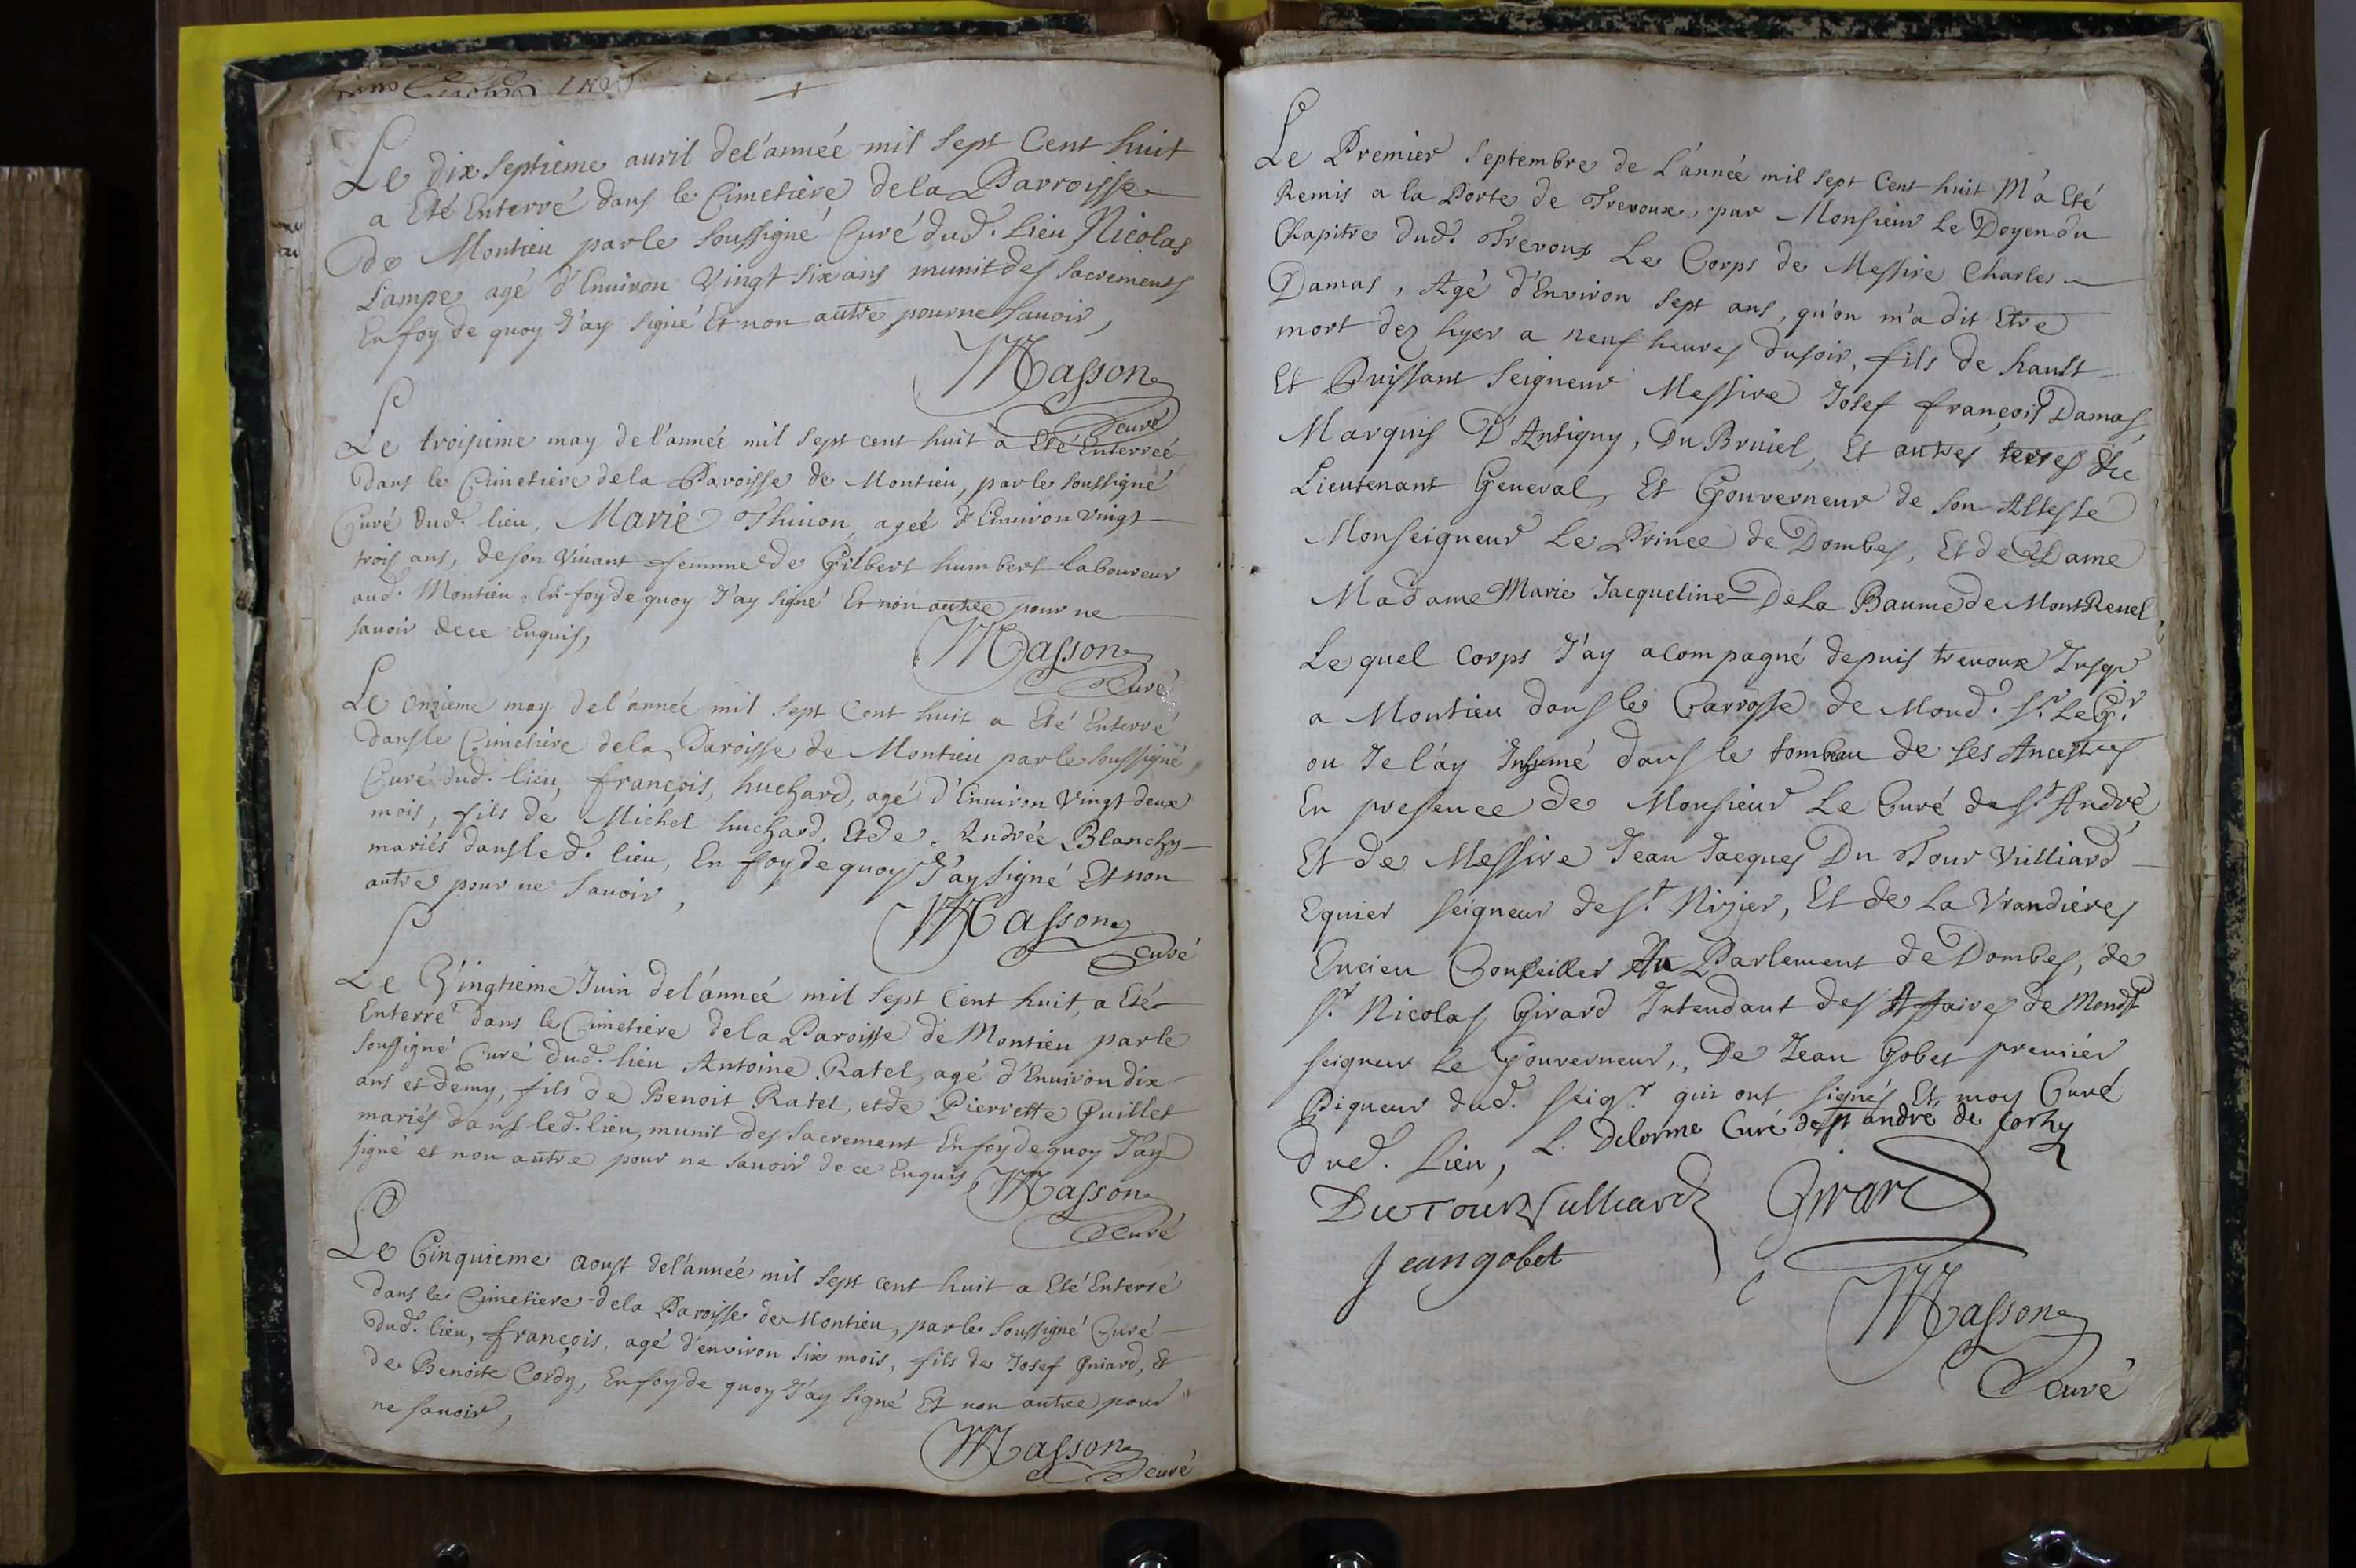 1708
Le dix septieme auril del'année mil sept Cent huit
a Eté Enterré dans le Cimetière dela Parroisse
de Montieu parle soussigné Curé dud. lieu Nicolas
Lampe agé d'Enuiron Vingt six ans munit des sacrements
En foy de quoy J'ay signé Et non autre pour ne sauoir,
Masson
curé
Le troisieme may de l'année mil sept cent huit a Eté Enterreé
dans le Cimetiere dela Paroisse de Montieu, parle soussigné
Curé dud. lieu, Marie Thiuon, ageé d'Enuiron vingt
trois ans, deson viuant femme de Gilbert humbert laboureur
aud. Montieu, En foy de quoy J'ay signé Et non autre pour ne
sauoir dece Enquis,
Masson
Curé
Le Onzieme may del'année mil sept Cent huit a Eté Enterré
dansle Cimetiere dela Paroisse de Montieu parle soussigné
Curé dud. lieu, françois, huchard, agé d'Enuiron Vingt deux
mois, fils de Michel huchard, Et de Andrée Blanchy
mariés dans led. lieu, En foy de quoy J'ay signé Et non
autre pour ne sauoir,
Masson
curé
Le Vingtieme Juin del'année mil sept Cent huit, a Eté
Enterré dans le Cimetiere dela Paroisse de Montieu parle
soussigné Curé dud. lieu Antoine Ratel, agé d'Enuiron dix
ans et demy, fils de Benoit Ratel, et de Pierrette Guillet
mariés dans led. lieu, munit des sacrement En foy de quoy J'ay
signé et non autre pour ne sauoir de ce Enquis,
Masson
Curé
Le Cinquieme aoust del'année mil sept cent huit a Eté Enterré
dans le Cimetiere dela Paroisse de Montieu, parle soussigné Curé
dud. lieu, françois, agé d'environ six mois, fils de Josef Gniard, Et
de Benoite Cordy, En foy de quoy J'ay signé Et non autre pour
ne sauoir,
Masson
curé
Le Premier septembre de L'année mil sept Cent huit M'a Eté
Remis a la Porte de Trevoux, par Monsieur Le Doyen du
Chapitre dud. Trevoux Le Corps de Messire Charles
Damas, Agé d'Environ sept ans, qu'on m'a dit Etre
mort dez hyer a neuf heures dusoir, fils de hault
Et Puissant Seigneur Messire Josef françois Damas,
Marquis D'Antigny, Du Bruiel, Et autres terres &c
Lieutenant General, Et Gouverneur de Son Altesse
Monseigneur Le Prince de Dombes, Et de Dame
Madame Marie Jacqueline De La Baume de MontReuel,
Le quel Corps J'ay acompagné depuis treuoux Jusqu'
a Montieu dans le Carrosse de Mond. sr. Le Gr.
ou Je l'ay Inhumé dans le tombeau de ses Ancestres
En presence de Monsieur Le Curé de st. André,
Et de Messire Jean Jacques Du Tour Vulliard
Equier seigneur de st. Nizier, Et de La Vrandiere,
Encien Conseiller Au Parlement de Dombes, de
sr. Nicolas Girard Intendant des Affaires de Mondt.
seigneur Le Gouverneur, De Jean Gobet premier
Piqueur dud. seigr. qui ont signés Et moy Curé
dud. Lieu, L. Delorme Curé de st andré de Corhy
DuTour Vulliard Girard
Jean gobet
Masson
Curé